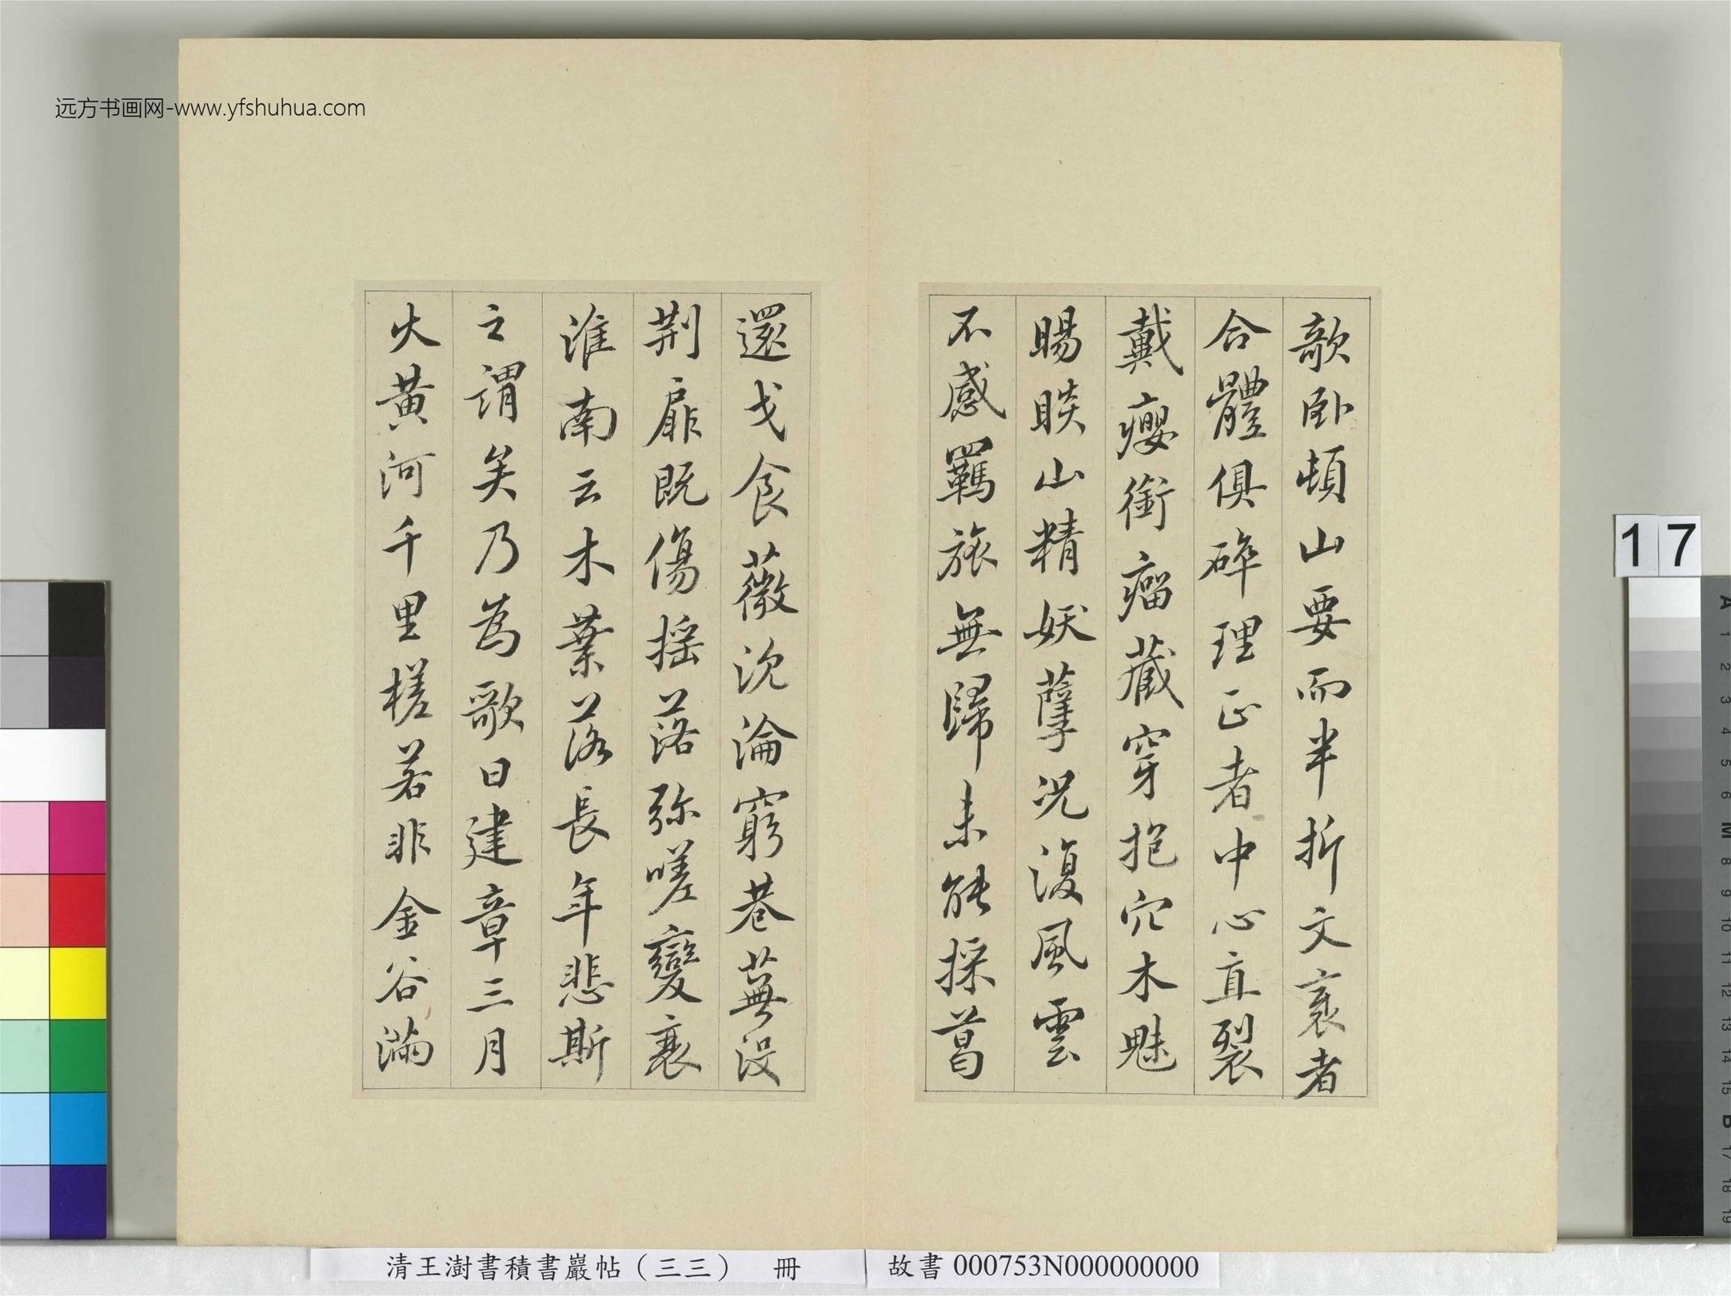 远方书画网-www.yfshuhua.com
歌卧頓山要而半折文衺者
合體俱碎理正者中心直裂
戴癭銜瘤藏穿抱穴木魅
賜睒山精妖孽况復風雲
不感羈旅無歸未能採葛
還成食薇沈淪窮巷蕪没
荆扉既傷摇落弥嗟變衰
淮南云木葉落長年悲斯
之謂矣乃為歌曰建章三月
火黄河千里槎若非金谷滿
17
清王澍書積書巖帖（三三） 冊
故書 000753N000000000